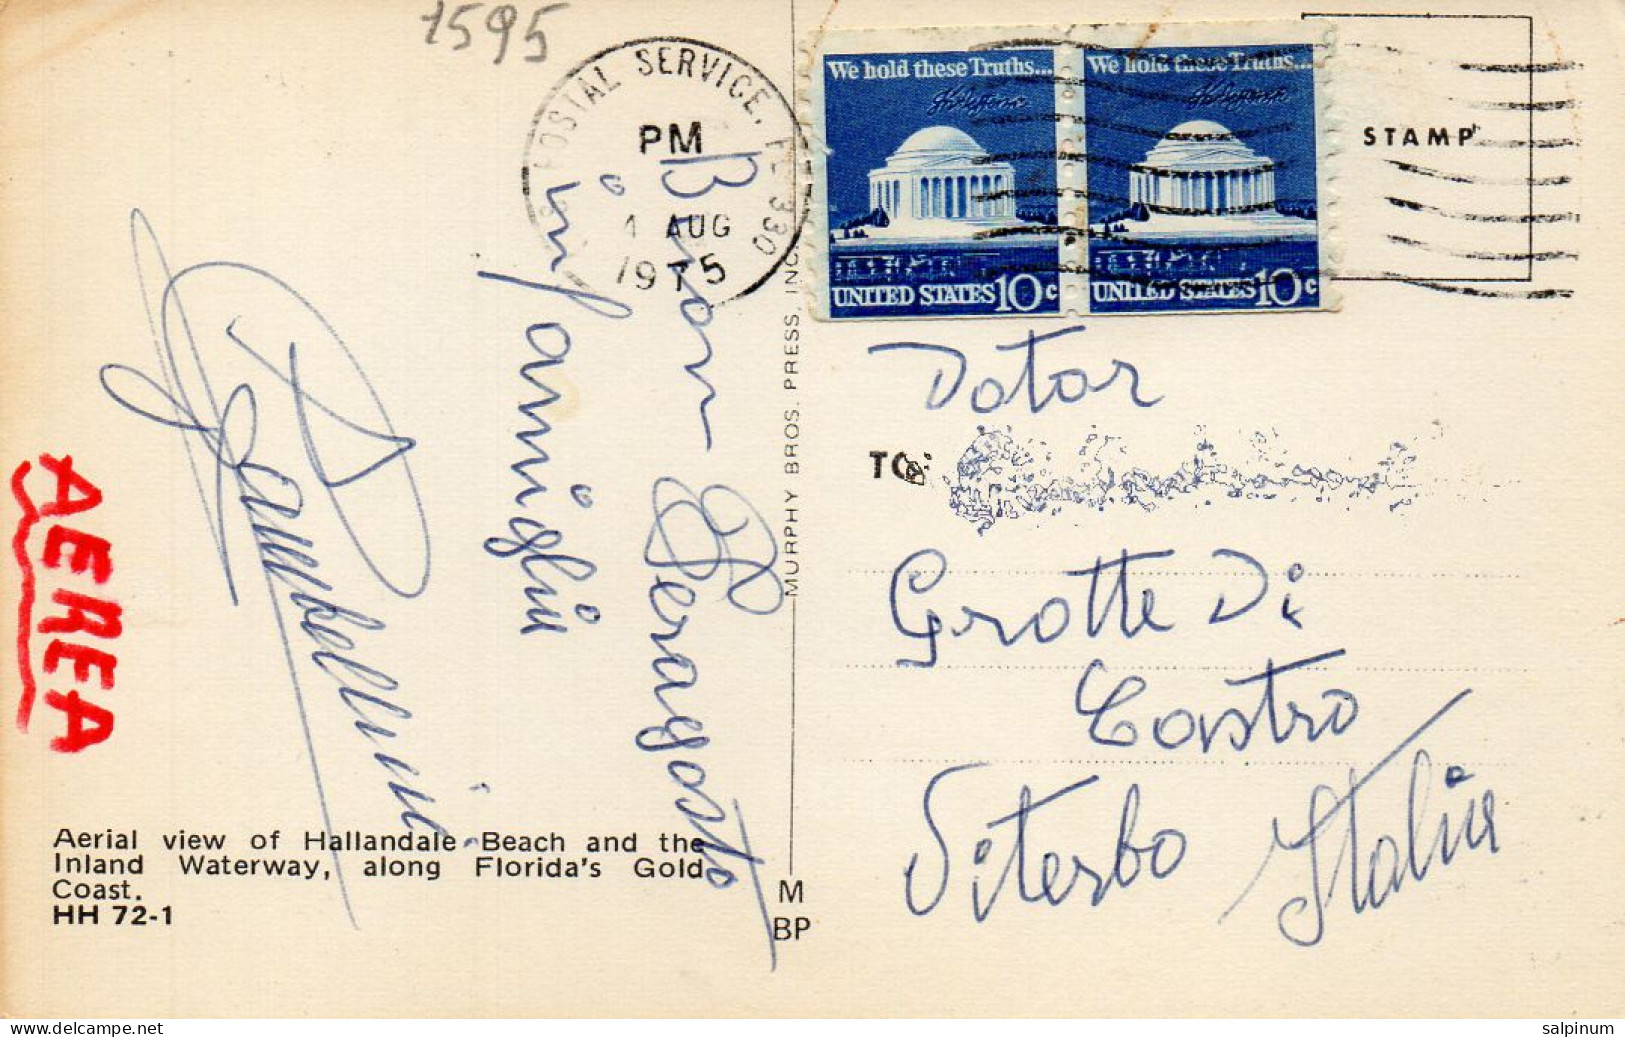 1595
POSTAL SERVICE, FL 330
PM
1 AUG
1975
We hold these Truths...
UNITED STATES 10c
We hold these Truths...
UNITED STATES 10c
STAMP
Buon Feragosto
in famiglia
AEREA
MURPHY BROS. PRESS, INC.
Dotor
TO:
Grotte Di
Castro
Viterbo Italia
Aerial view of Hallandale Beach and the
Inland Waterway, along Florida's Gold
Coast.
HH 72-1
M
BP
delcampe.net
salpinum